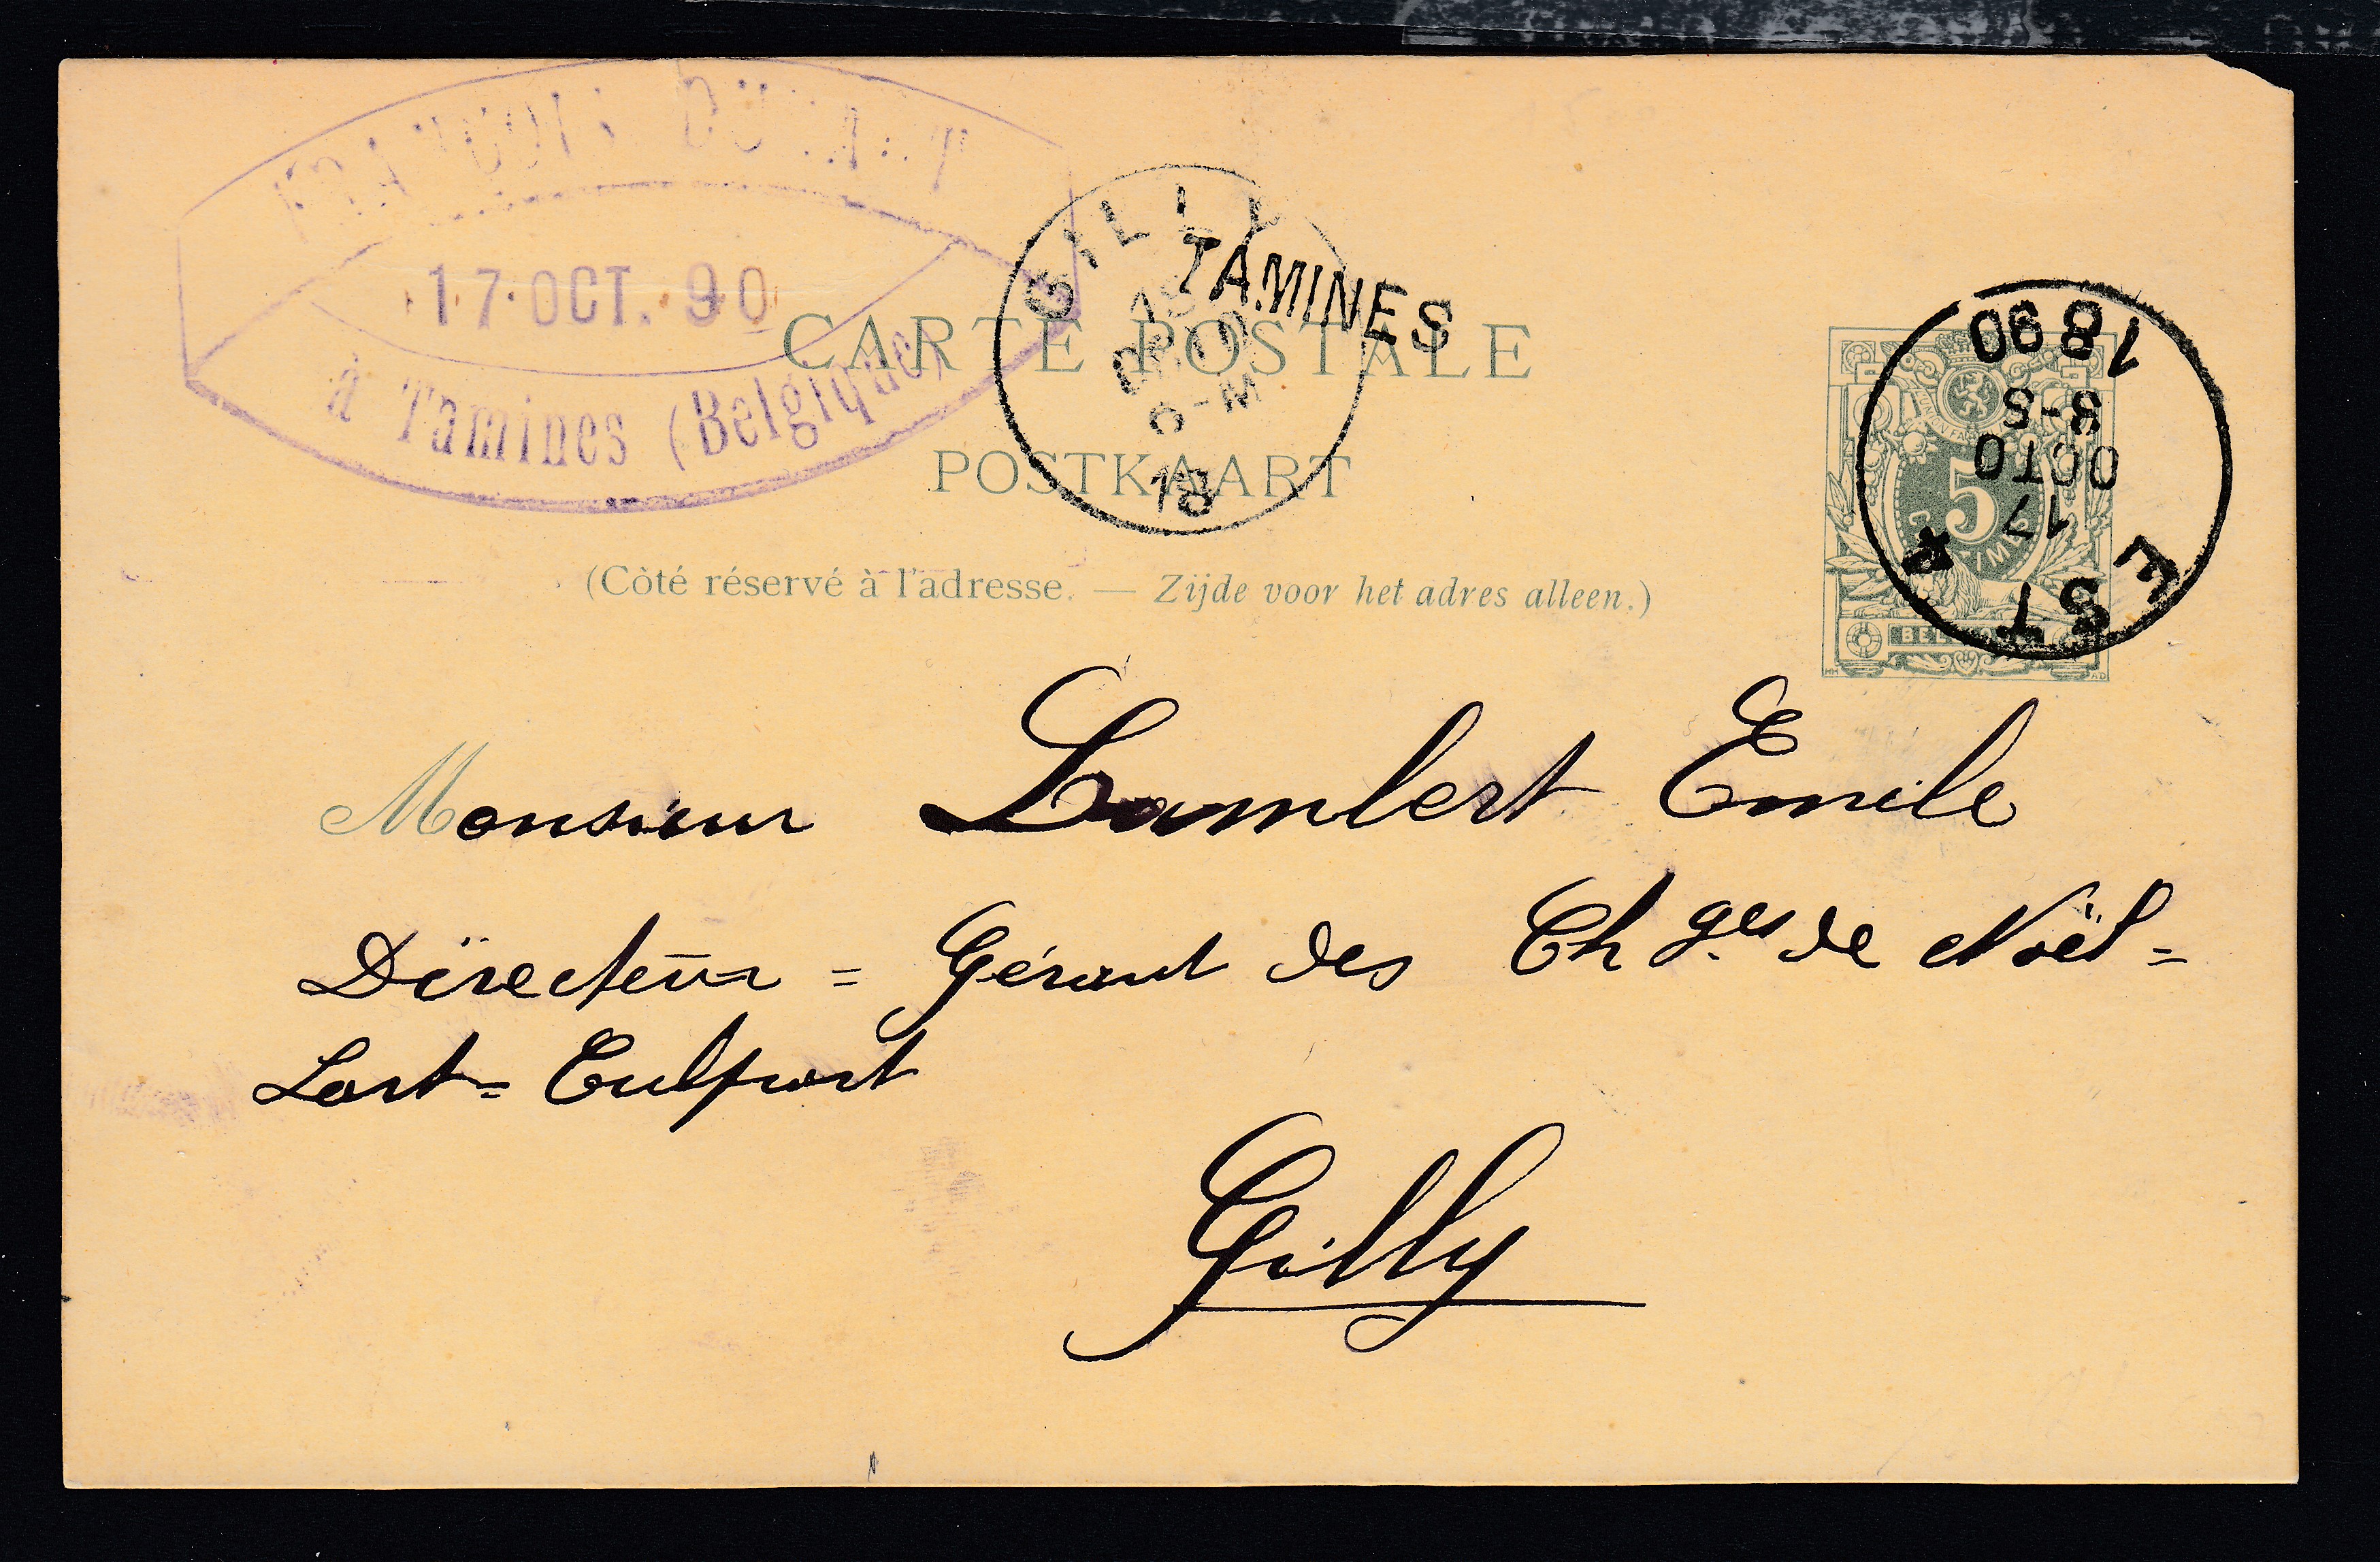 17 OCT. 90
à Tamines (Belgique)
GILLY
OCTO
18
TAMINES
CARTE POSTALE
POSTKAART
(Côté réservé à l'adresse. — Zijde voor het adres alleen.)
1890
3-5
OCTO
17
EST 4
5
Monsieur Lambert Emile
Directeur = Gérant des Ch ges de Noël =
Sart = Culpart
Gilly